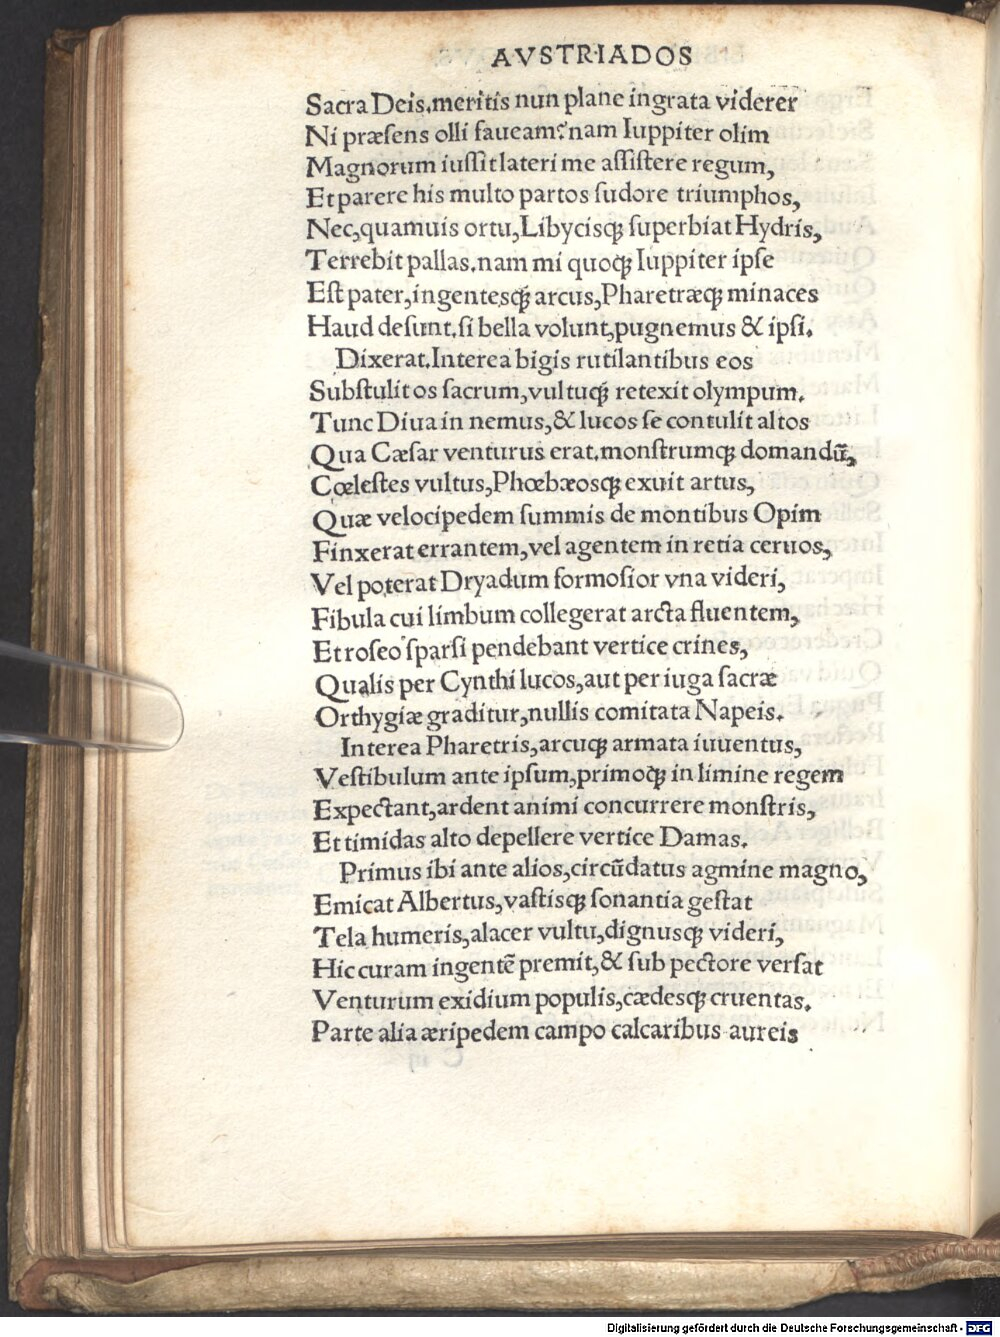 AVSTRIADOS
Sacra Deis.meritis nun plane ingrata viderer
Ni præsens olli faueam?nam Iuppiter olim
Magnorum iussit lateri me assistere regum,
Et parere his multo partos sudore triumphos,
Nec,quamuis ortu,Libycisqꝫ superbiat Hydris,
Terrebit pallas.nam mi quoqꝫ Iuppiter ipse
Est pater,ingentesqꝫ arcus,Pharetræqꝫ minaces
Haud desunt.si bella volunt,pugnemus & ipsi.
Dixerat.Interea bigis rutilantibus eos
Substulit os sacrum,vultuqꝫ retexit olympum.
Tunc Diua in nemus,& lucos se contulit altos
Qua Cæsar venturus erat.monstrumqꝫ domandū,
Cœlestes vultus,Phœbæosqꝫ exuit artus,
Quæ velocipedem summis de montibus Opim
Finxerat errantem,vel agentem in retia ceruos,
Vel poterat Dryadum formosior vna videri,
Fibula cui limbum collegerat arcta fluentem,
Et roseo sparsi pendebant vertice crines,
Qualis per Cynthi lucos,aut per iuga sacræ
Orthygiæ graditur,nullis comitata Napeis.
Interea Pharetris,arcuqꝫ armata iuuentus,
Vestibulum ante ipsum,primoqꝫ in limine regem
Expectant,ardent animi concurrere monstris,
Et timidas alto depellere vertice Damas.
Primus ibi ante alios,circūdatus agmine magno,
Emicat Albertus,vastisqꝫ sonantia gestat
Tela humeris,alacer vultu,dignusqꝫ videri,
Hic curam ingentē premit,& sub pectore versat
Venturum exidium populis,cædesqꝫ cruentas.
Parte alia æripedem campo calcaribus aureis
Digitalisierung gefördert durch die Deutsche Forschungsgemeinschaft - DFG